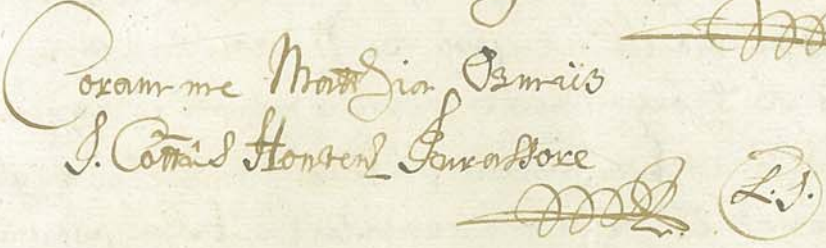 Coram me Matthia Osmiiß
I. Cottûs Honten Jurassore
L. S.